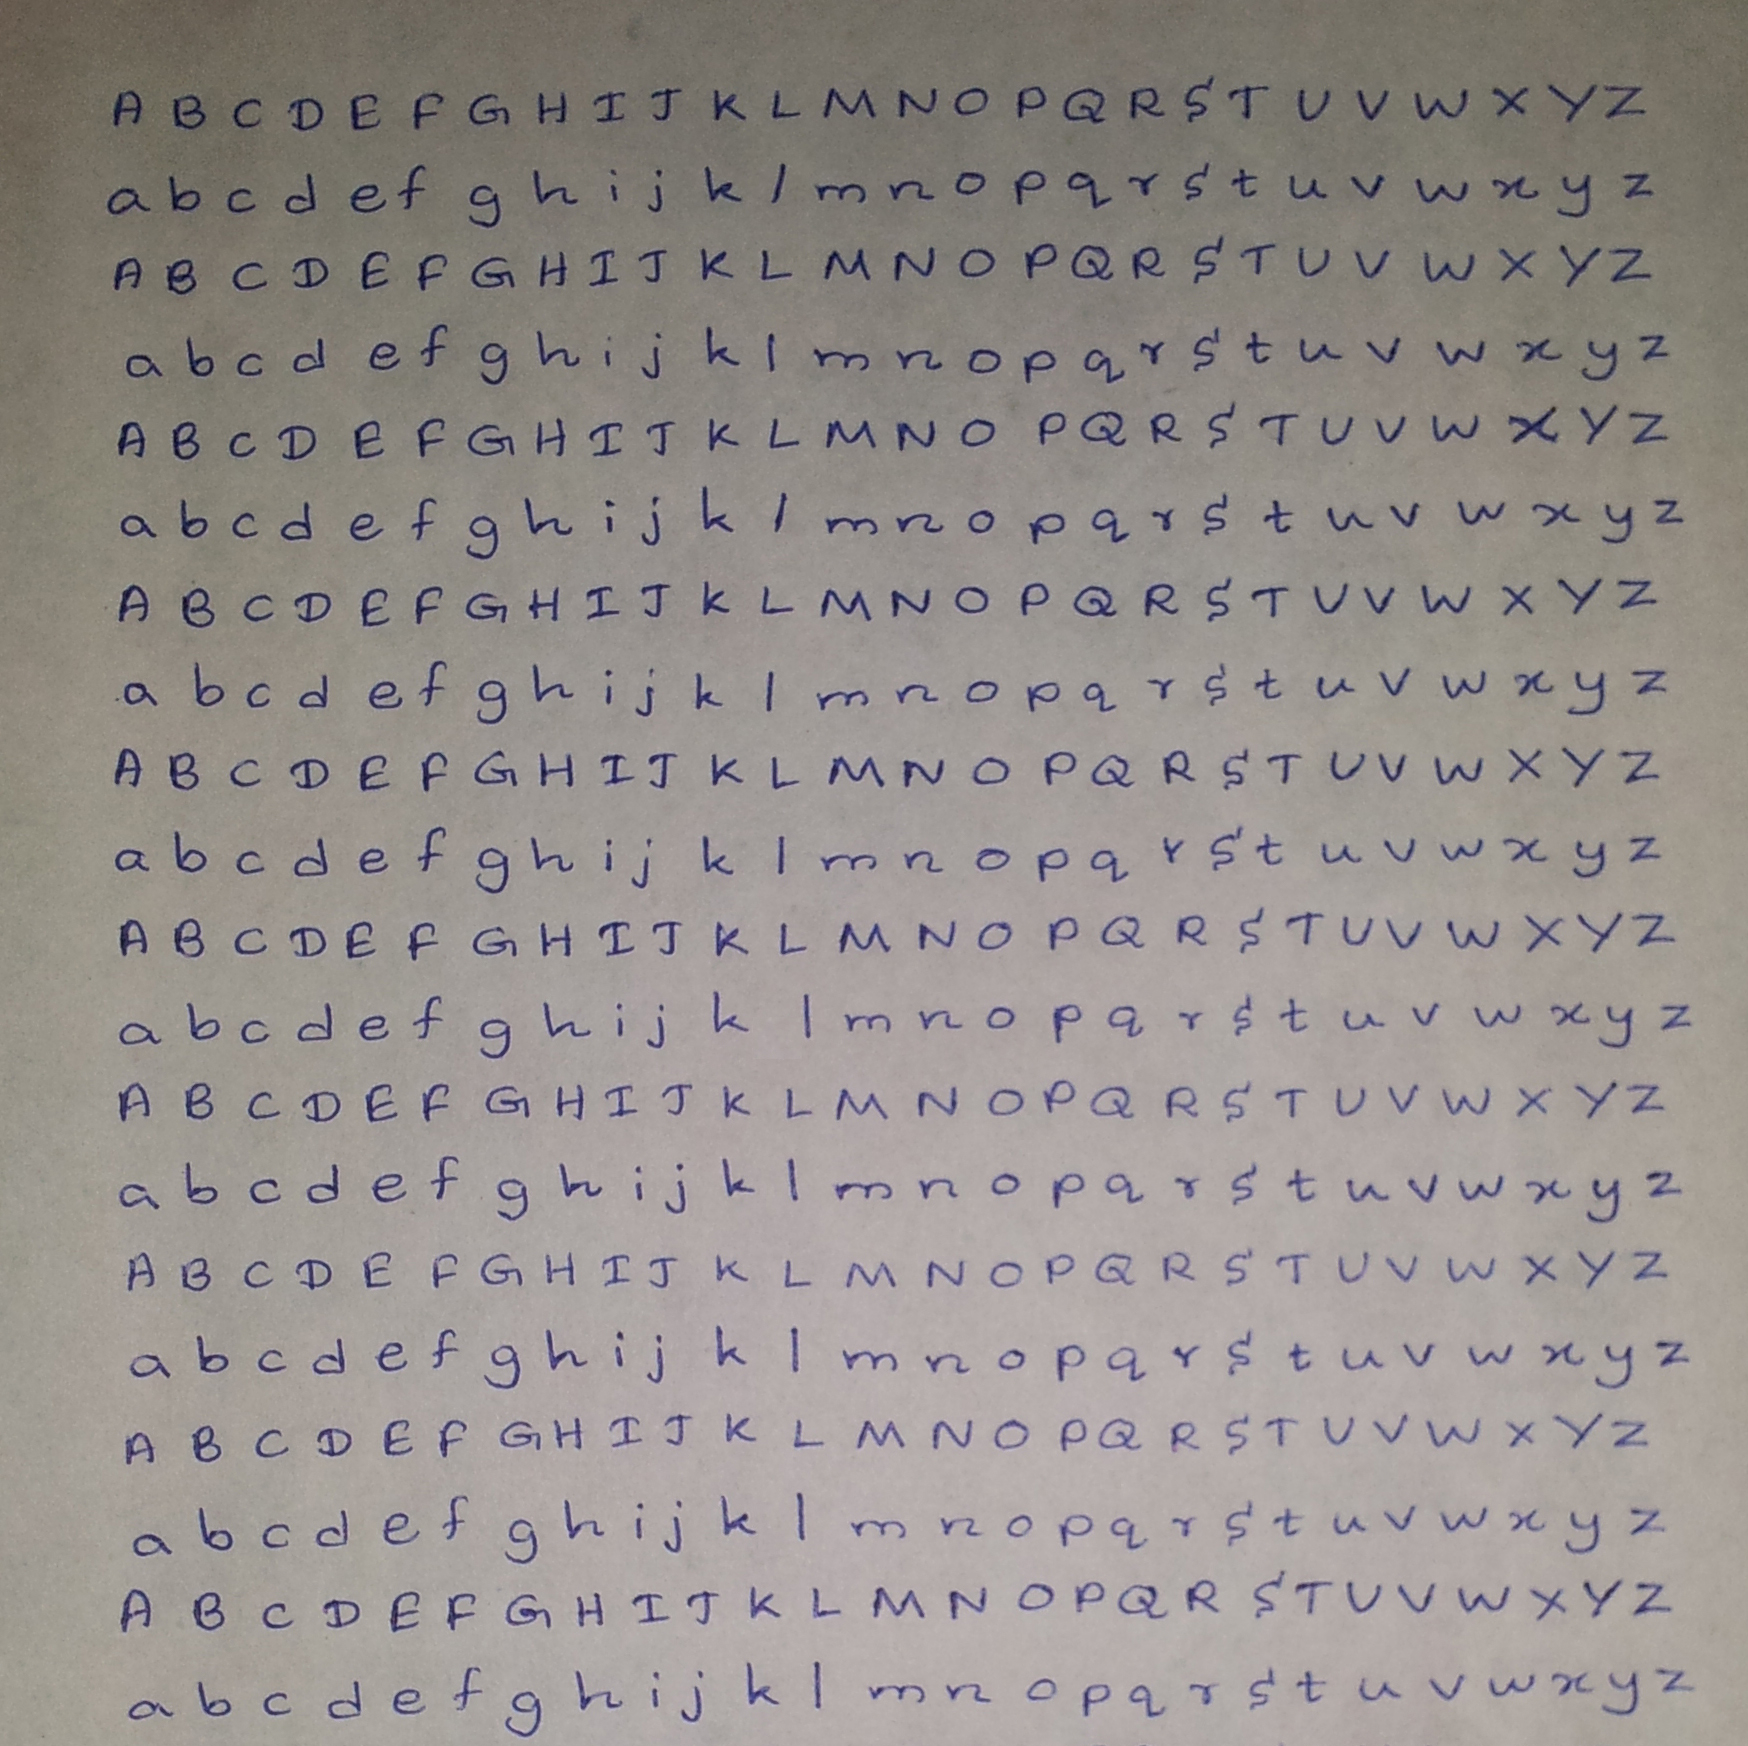 A B C D E F G H I J K L M N O P Q R S T U V W X Y Z
a b c d e f g h i j k l m n o p q r s t u v w x y z
A B C D E F G H I J K L M N O P Q R S T U V W X Y Z
a b c d e f g h i j k l m n o p q r s t u v w x y z
A B C D E F G H I J K L M N O P Q R S T U V W X Y Z
a b c d e f g h i j k l m n o p q r s t u v w x y z
A B C D E F G H I J K L M N O P Q R S T U V W X Y Z
a b c d e f g h i j k l m n o p q r s t u v w x y z
A B C D E F G H I J K L M N O P Q R S T U V W X Y Z
a b c d e f g h i j k l m n o p q r s t u v w x y z
A B C D E F G H I J K L M N O P Q R S T U V W X Y Z
a b c d e f g h i j k l m n o p q r s t u v w x y z
A B C D E F G H I J K L M N O P Q R S T U V W X Y Z
a b c d e f g h i j k l m n o p q r s t u v w x y z
A B C D E F G H I J K L M N O P Q R S T U V W X Y Z
a b c d e f g h i j k l m n o p q r s t u v w x y z
A B C D E F G H I J K L M N O P Q R S T U V W X Y Z
a b c d e f g h i j k l m n o p q r s t u v w x y z
A B C D E F G H I J K L M N O P Q R S T U V W X Y Z
a b c d e f g h i j k l m n o p q r s t u v w x y z